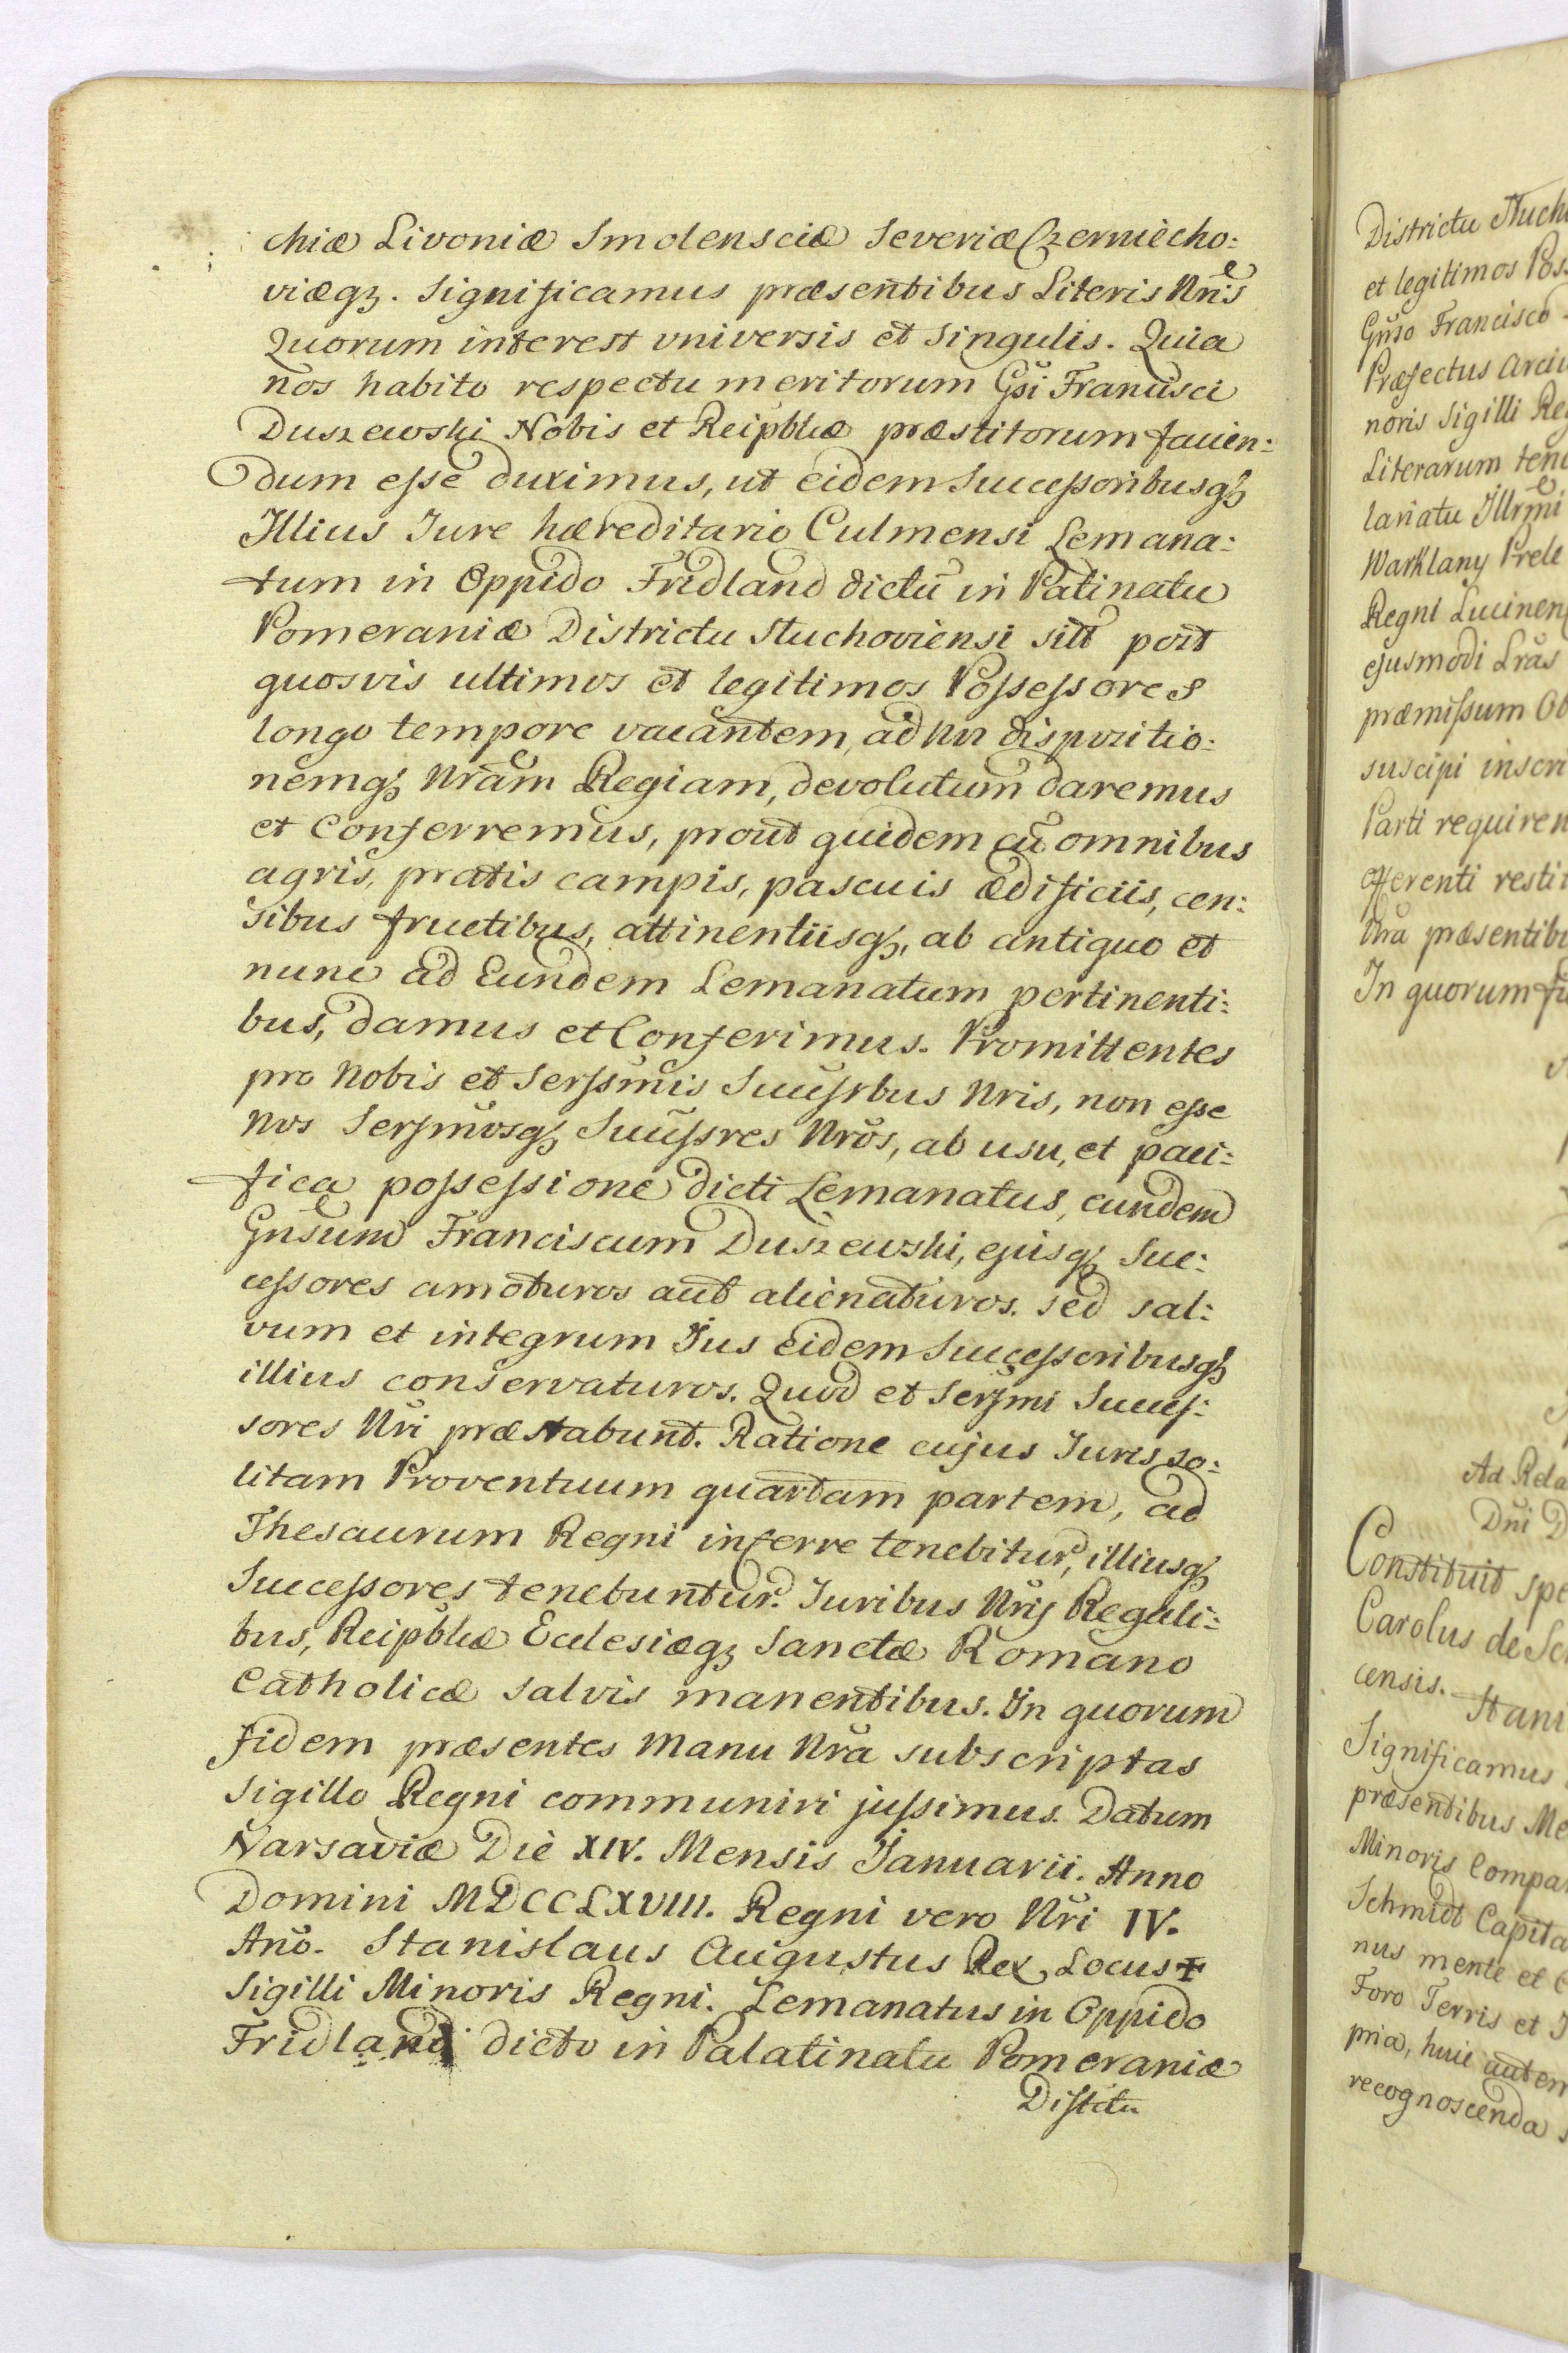 chiæ Livoniæ Smolensciæ Severiæ Czerniecho:
viæqz. Significamus præsentibus Literis Nris
Quorum interest universis et Singulis. Quia
nos habito respectu meritorum Gsi Francisci
Duszewski Nobis et Reipblicæ præstitorum facien:
dum eſse duximus, ut eidem Succeſsoribusqz
Illius Iure hæreditario Culmensi Lemana:
tum in Oppido Fridland dictū in Patinatu
Pomeraniæ Districtu Stuchoviensi sitt post
quosvis ultimos et legitimos Poſseſsores
longo tempore vacantem, ad Nos dispozitio:
nemqz Nrãm Regiam, devolutum daremus
et Conferremus, prout quidem cū omnibus
agris, pratis campis, pascuis ædificiis, cen:
sibus fructibus, attinentiisqz, ab antiquo et
nunc ad Eundem Lemanatum pertinenti:
bus, damus et Conferimus. Promittentes
pro Nobis et Serſsmis Succſsrbus Nris, non eſse
Nos Serſmosqz Succſsres Nros, ab usu, et paci:
fica poſseſsione dicti Lemanatus, eundem
Gnsum Franciscum Duszewski, ejusqz Suc:
ceſsores amoturos aut alienaturos. sed sal:
vum et integrum Jus Eidem Succeſsoribusqz
illius conservaturos. Quod et Serſmi Succeſ:
sores Nri præstabunt. Ratione cujus Iuris so:
litam Proventuum quartam partem, ad
Thesaurum Regni inferre tenebitur, illiusqz
Succeſsores tenebuntur. Iuribus Nris Regali:
bus, Reipblicæ Eclesiæqz Sanctæ Romano
Catholicæ salvis manentibus. In quorum
fidem præsentes Manu Nra subscriptas
Sigillo Regni communiri juſsimus. Datum
Varsaviæ Die XIV. Mensis Januarii. Anno
Domini MDCCLXVIII. Regni vero Nri IV.
Anō. Stanislaus Augustus Rex. Locus +
Sigilli Minoris Regni. Lemanatus in Oppido
Fridland dicto in Palatinatu Pomeraniæ
Diſtctu
Districtu Stuch
et legitimos Poſs
Gnso Francisco
Præfectus Arci
noris Sigilli Re
Literarum ten
lariatu Illrmi
Warklany Prele
Regni Lucinen
ejusmodi Lras
præmiſsum Ob
suscipi inscri
Parti requiren
offerenti resti
Nra præsentib
In quorum fi
Ad Rela
Dni D
Constituit spe
Carolus de Sc
censis. Stani
Significamus
præsentibus Me
Minoris Compa
Schmidt Capita
nus mente et c
Foro Terris et I
pria, huic autem
recognoscenda s